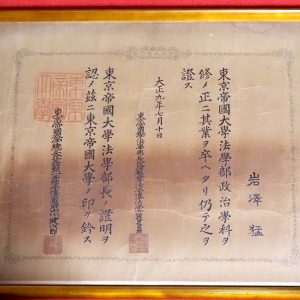 岩澤猛
東京帝國大學法學部政治學科ヲ
修メ正ニ其業ヲ卒ヘタリ仍テ之ヲ
證ス
大正九年七月十日
東京帝國大學法學部長
東京帝國大學法學部長ノ證明ヲ
認メ茲ニ東京帝國大學ノ印ヲ鈐ス
東京帝國大學總長